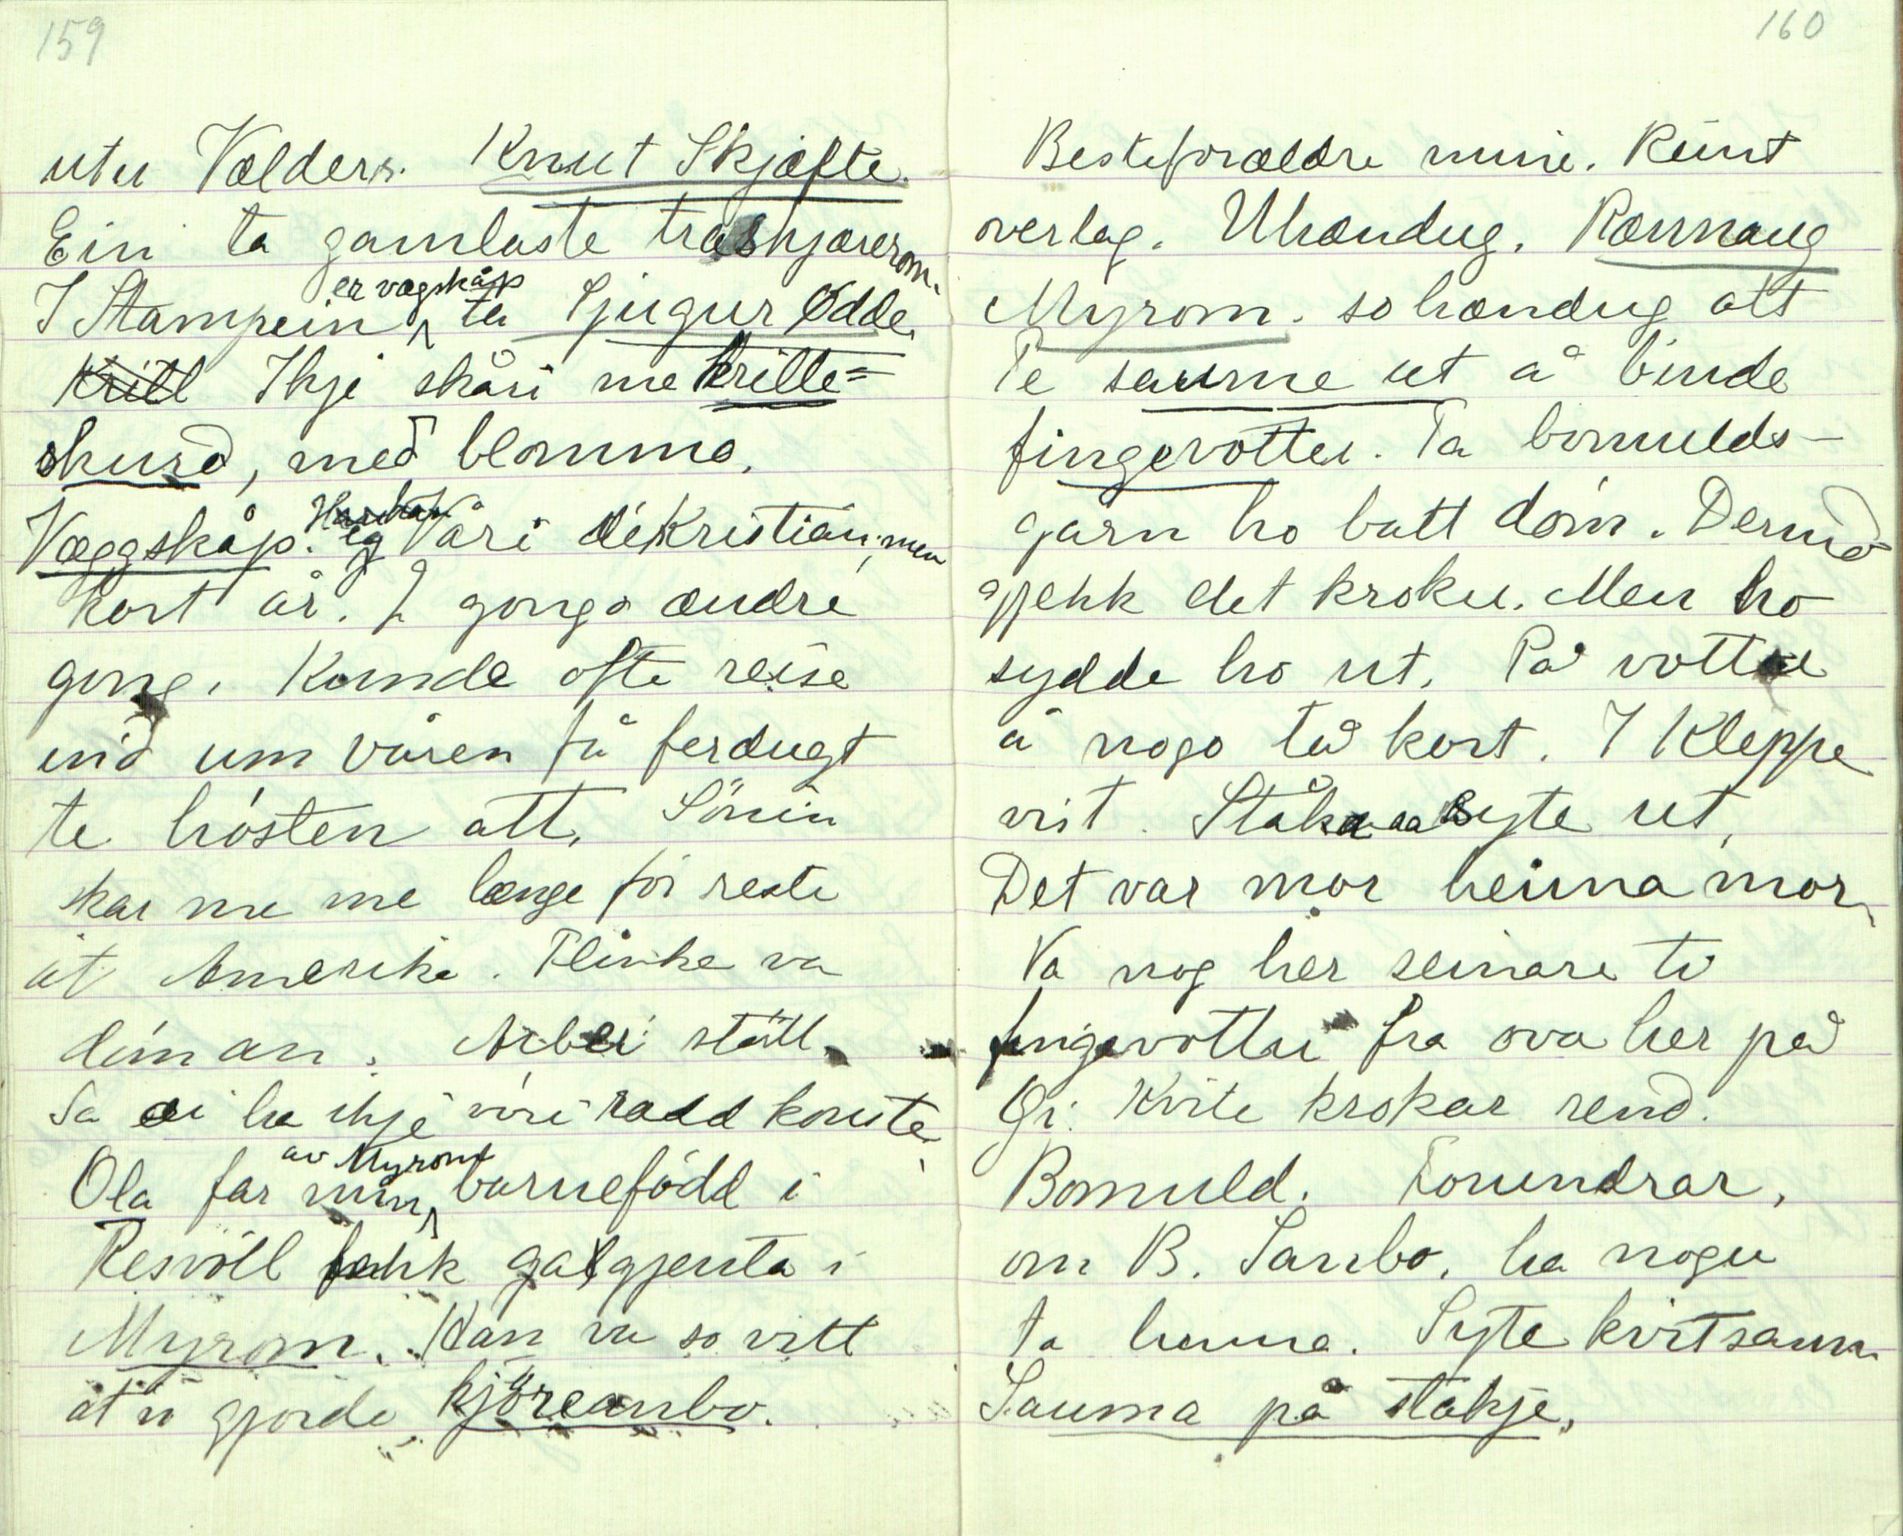 159
utu Valders. Knut Skjæfte.
Ein ta gamlaste traskjærerom.
I Stampein er vægskåp ta Sjugur Ødde.
Krill Ikje skåri me krille=
skurd, med blommo.
Væggskåp. eg Våri dei Kristian, men
kort år. 2 gongo andre
gong. Kunde ofte reise
um våren få ferdugt
te hösten att. Sönin
skar me me længe för reste
åt Amerika. Flinke va
döm an. Arbei stött.
Sa ei ha ikje vöri radd konste
Ola far min av Myrom barnefödd i
Resvöll fehk galgjenta i
Myrom. Kan va so vitt
at'n gjorde kjöreanbo.
160
Besteforældre mine. Runt
overlag. Uhændug. Rannaug
Myrom. so hændug alt
Te saume ut å binde
fingevottu. Ta bomulds-
garn ho batt döm. Dermö
gjekk det kroku. Men ho
sydde ho ut. På vottu
å nogo tå kort. I Kleppe
vist. Ståka syte ut,
Det var mor heima mor.
Va nog her seinare to
fingevottu fra ova her på
Gi. Kvite krokar rend.
Bomuld. Forundrar,
om B. Sanbo, ha nogu
ta henna. Syte kvitsaum.
Sauma på stakje.